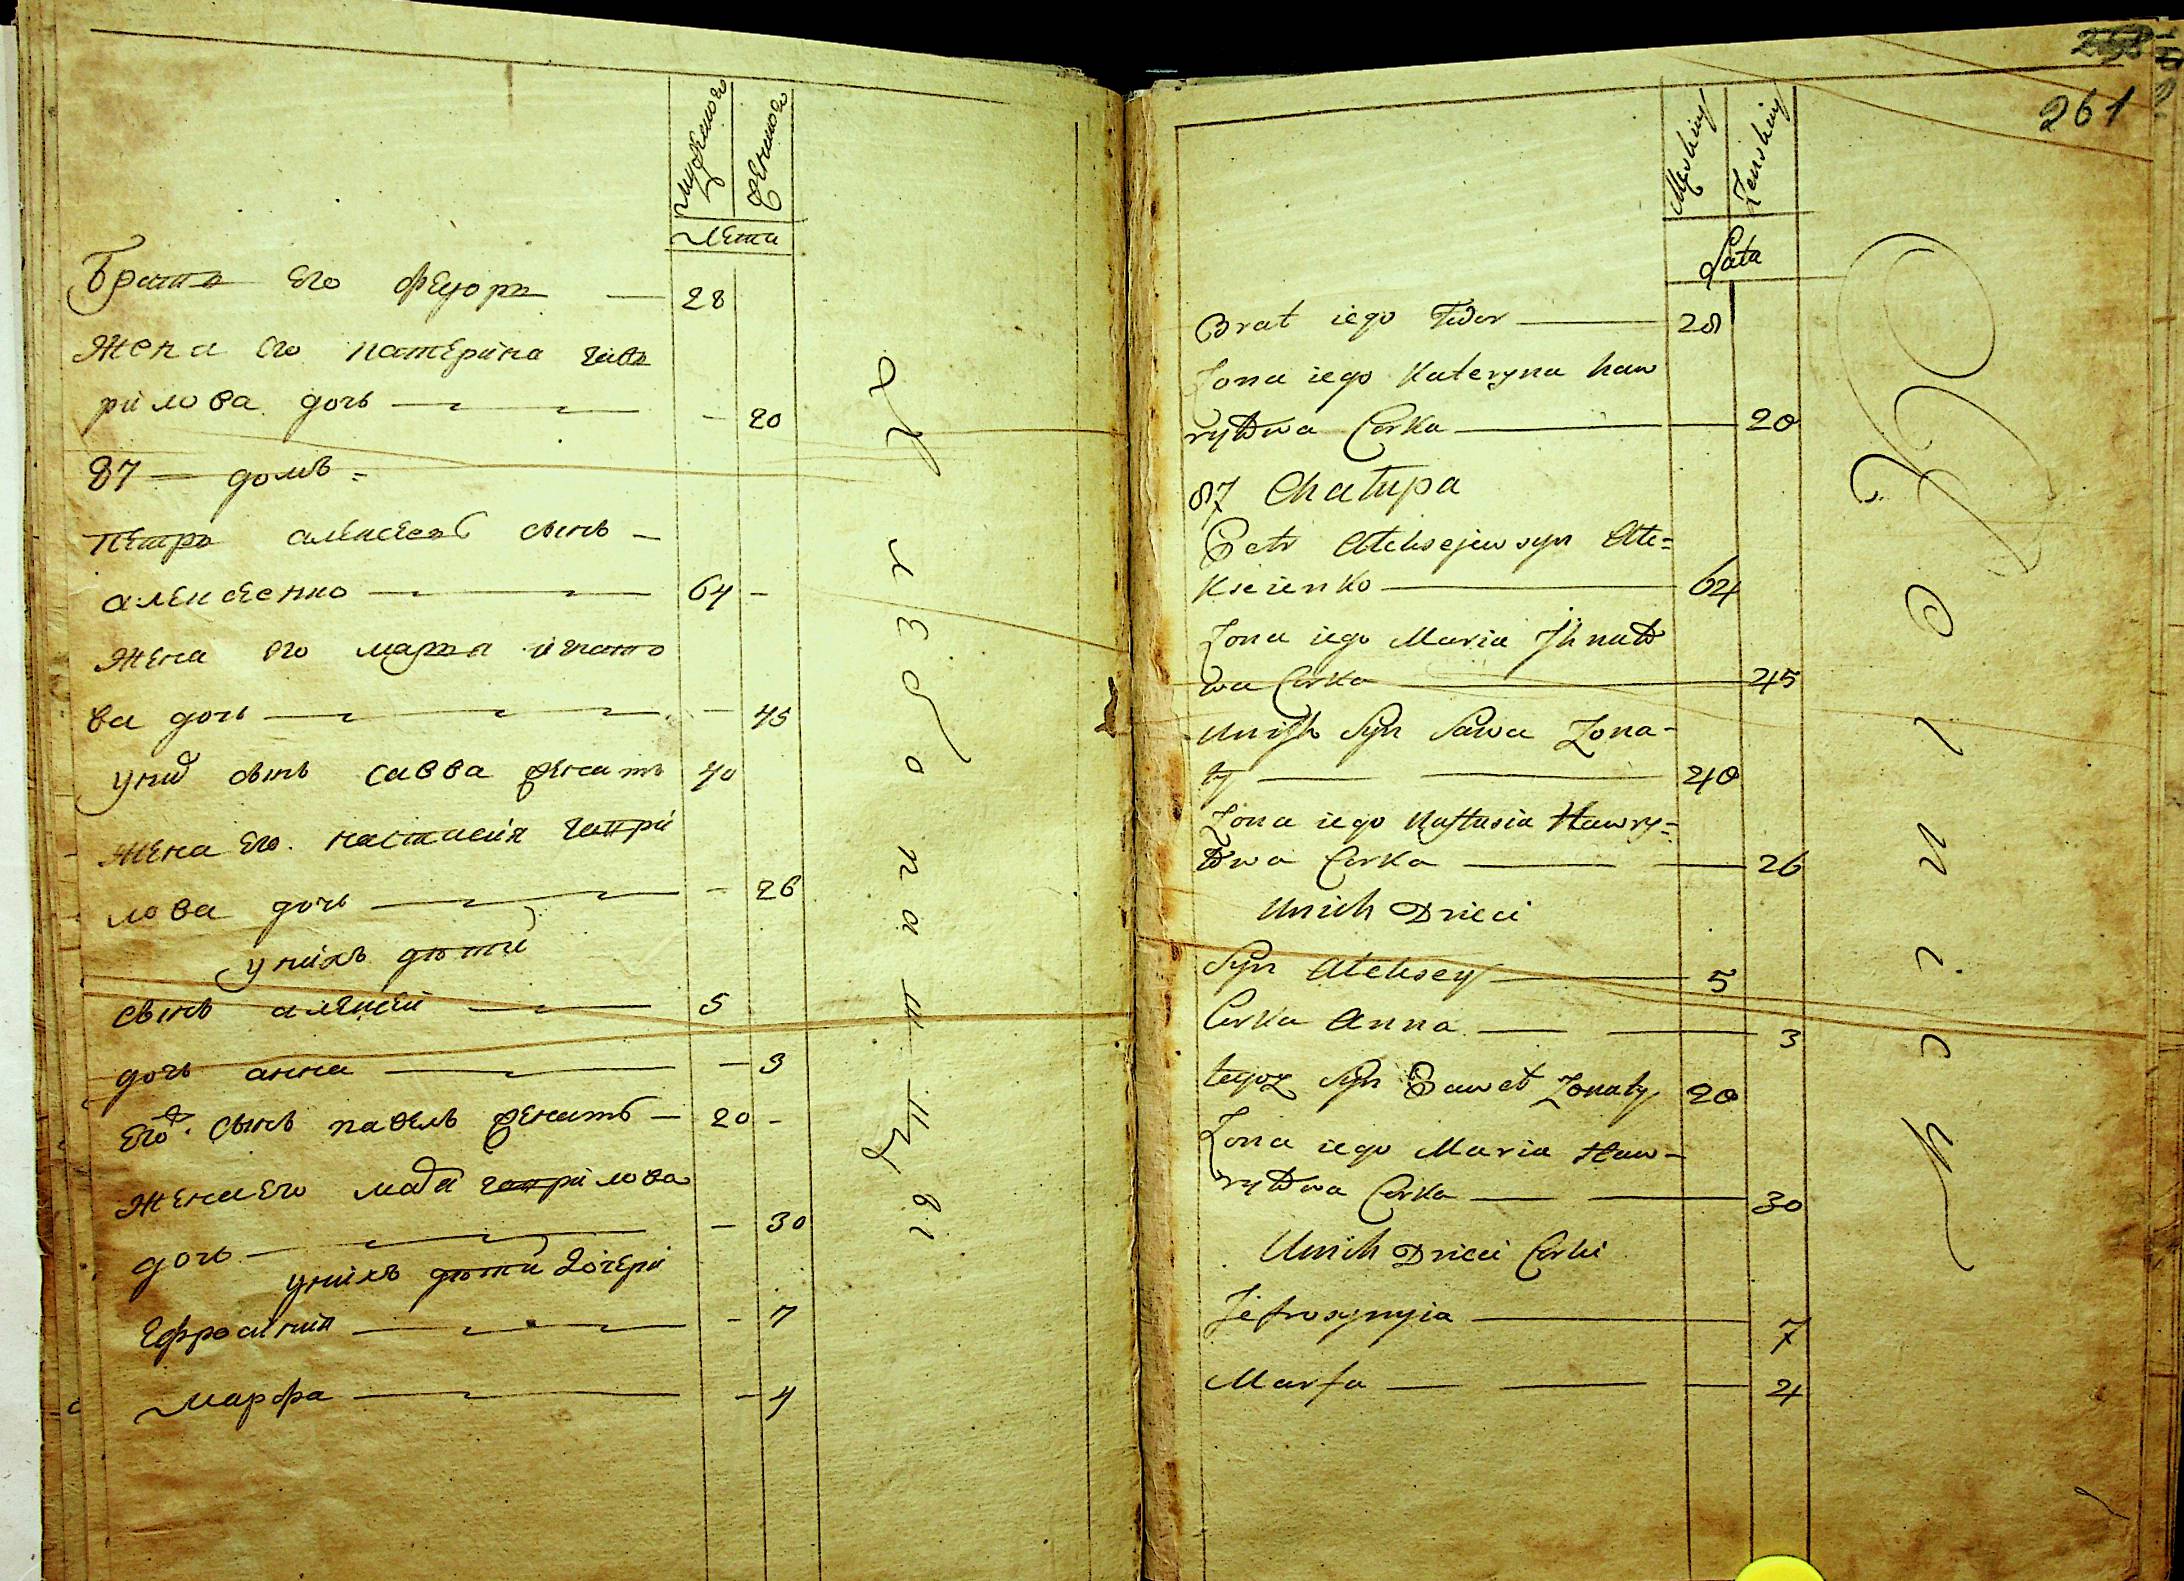 мужеско
женско
лета
Братъ его феторъ — 28
Жена его катерина гав
рилова дочь — 20
87 — домъ =
Петръ алексеевъ сынъ —
алексеенко — 64 —
Жена его марья игнато
ва дочь — 45
у нихъ сынъ савва женатъ 40
Жена его настасия гаври
лова дочь — 26
у нихъ дѣти
сынъ алексей — 5
дочь анна — 3
его сынъ павелъ женатъ — 20 -
Жена его гаврилова
дочь — 30
у нихъ дѣти дочери
Ефросиния — 7
марфа — 4
261
Męskiey
Żenskiey
Lata
Brat iego Fedor — 28
Zona iego Kateryna haw
ryłowa Corka — 20
87 Chałupa
Petr Aleksejew syn Ale=
ksieienko — 64
Zona iego Maria Jhnato
wa Corka — 45
Unich Syn Sawa Zona-
ty — 40
Zona iego Nastasia Hawry=
łowa Corka — 26
Unich Dzieci
Syn Aleksey — 5
Corka Anna — 3
tegoz Syn Paweł Zonaty 20
Zona iego Maria Haw-
ryłowa Corka — 30
Unich Dzieci Corki
Jefrosynyia — 7
Marfa — 4